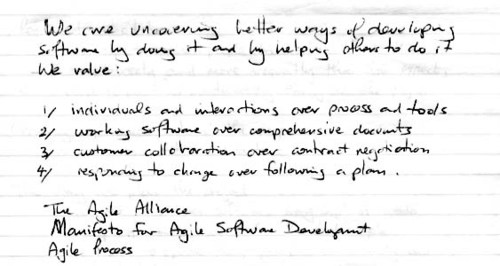 We are uncovering better ways of developing
software by doing it and by helping others to do it
We value:
1/ individuals and interactions over process and tools
2/ working software over comprehensive documents
3/ customer collaboration over contract negotiation
4/ responding to change over following a plan.
The Agile Alliance
Manifesto for Agile Software Development
Agile Process